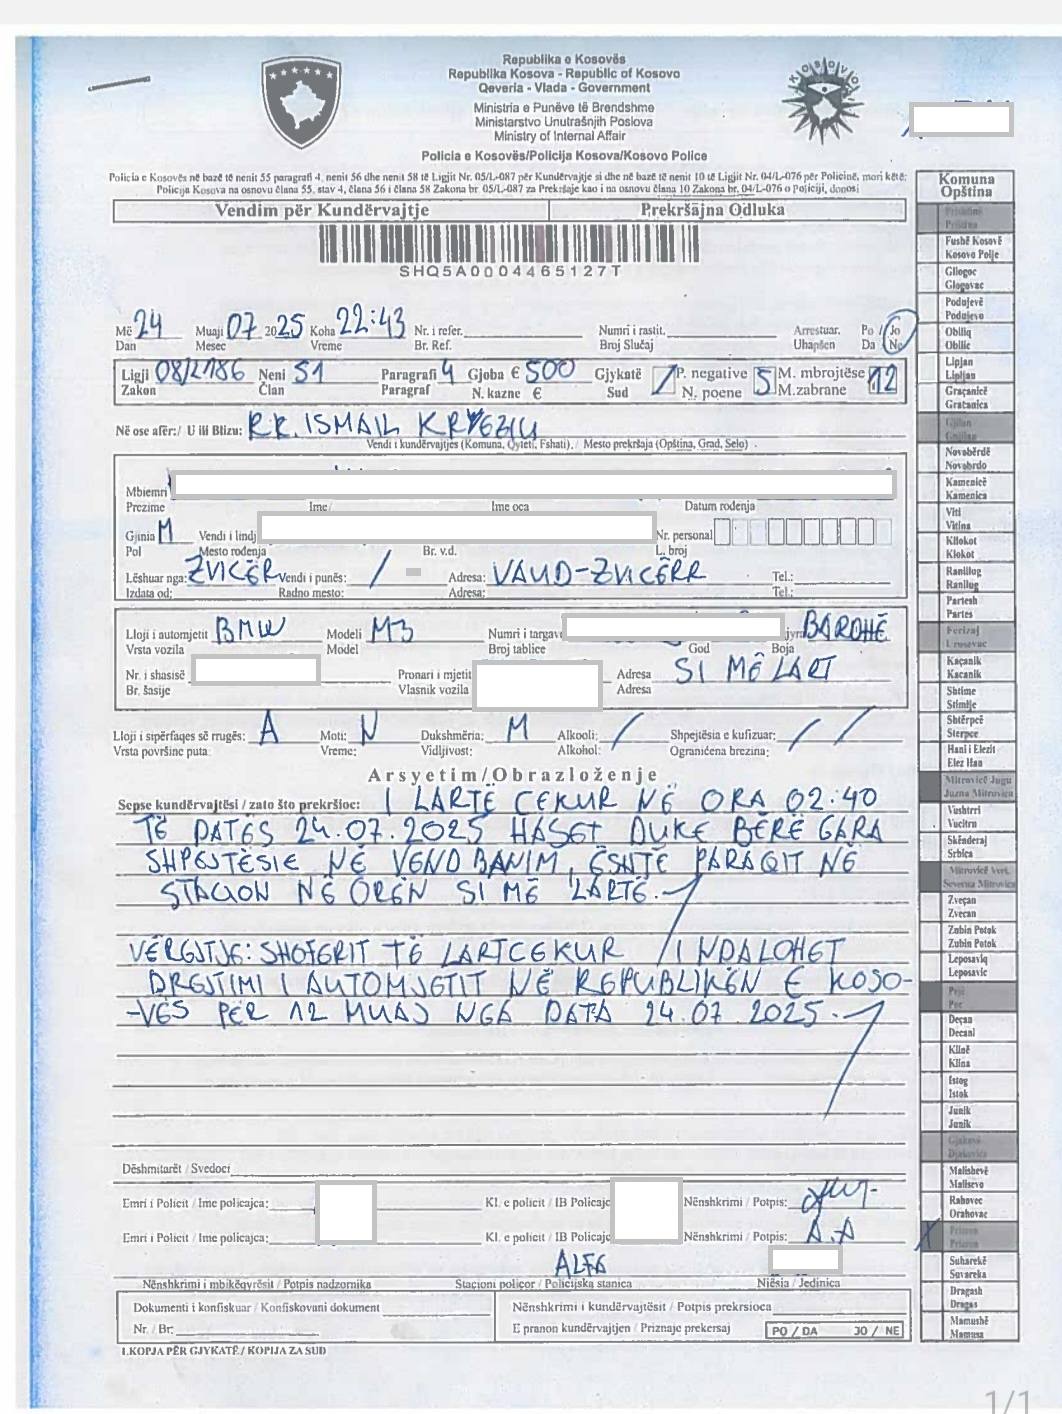 Republika e Kosovës
Republika Kosova - Republic of Kosovo
Qeveria - Vlada - Government
Ministria e Punëve të Brendshme
Ministarstvo Unutrašnjih Poslova
Ministry of Internal Affair
Policia e Kosovës/Policija Kosova/Kosovo Police
KOSOVO
Policia e Kosovës në bazë të nenit 55 paragrafi 4, nenit 56 dhe nenit 58 të Ligjit Nr. 05/L-087 për Kundërvajtje si dhe në bazë të nenit 10 të Ligjit Nr. 04/L-076 për Policinë, mori këtë:
Policija Kosova na osnovu člana 55, stav 4, člana 56 i člana 58 Zakona br. 05/L-087 za Prekršaje kao i na osnovu člana 10 Zakona br. 04/L-076 o Policiji, donosi
Vendim për Kundërvajtje Prekršajna Odluka
SHQ5A0004465127T
Më 24 Muaji 07 2025 Koha 22:43 Nr. i refer. Numri i rastit. Arrestuar. Po / Jo
Dan Mesec Vreme Br. Ref. Broj Slučaj Uhapšen Da / Ne
Ligji 08/L-186 Neni 51 Paragrafi 4 Gjoba € 500 Gjykatë / P. negative 5 M. mbrojtëse 12
Zakon Član Paragraf N. kazne € Sud N. poene M.zabrane
Në ose afër:/ U ili Blizu: RR. ISMAIL KRYEZIU
Vendi i kundërvajtjes (Komuna, Qyteti, Fshati), / Mesto prekršaja (Opština, Grad, Selo)
Mbiemri
Prezime Ime/ Ime oca Datum rođenja
Gjinia M Vendi i lindj Nr. personal
Pol Mesto rođenja Br. v.d. L. broj
Lëshuar nga: ZVICËR Vendi i punës: / Adresa: VAUD-ZVICËRR Tel.:
Izdata od: Radno mesto: Adresa: Tel.:
Lloji i automjetit BMW Modeli M3 Numri i targav BARDHË
Vrsta vozila Model Broj tablice God Boja
Nr. i shasisë Pronari i mjetit Adresa SI MË LART
Br. šasije Vlasnik vozila Adresa
Lloji i sipërfaqes së rrugës: A Moti: N Dukshmëria: M Alkooli: / Shpejtësia e kufizuar: / /
Vrsta površine puta: Vreme: Vidljivost: Alkohol: Ograničena brezina:
Arsyetim/Obrazloženje
Sepse kundërvajtësi / zato što prekršioc: I LARTË CEKUR NË ORA 02:40
TË DATËS 24.07.2025 HASET DUKE BËRË GARA
SHPEJTËSIE NË VENDBANIM, ËSHTË PARAQIT NË
STACION NË ORËN SI MË LARTË.
VËREJTJE: SHOFERIT TË LARTCEKUR / I NDALOHET
DREJTIMI I AUTOMJETIT NË REPUBLIKËN E KOSO-
-VËS PËR 12 MUAJ NGA DATA 24.07.2025.
Dëshmitarët / Svedoci
Emri i Policit / Ime policajca: Kl. e policit / IB Policajc Nënshkrimi / Potpis:
Emri i Policit / Ime policajca: Kl. e policit / IB Policajc Nënshkrimi / Potpis: A.A
ALFA
Nënshkrimi i mbikëqyrësit / Potpis nadzornika Stacioni policor / Policijska stanica Njësia / Jedinica
Dokumenti i konfiskuar / Konfiskovani dokument Nënshkrimi i kundërvajtësit / Potpis prekrsioca
Nr. / Br: E pranon kundërvajtjen / Priznaje prekersaj PO / DA JO / NE
1.KOPJA PËR GJYKATË / KOPIJA ZA SUD
Komuna
Opština
Prishtinë
Priština
Fushë Kosovë
Kosovo Polje
Gllogoc
Glogovac
Podujevë
Podujevo
Obiliq
Obilic
Lipjan
Lipljan
Graçanicë
Gracanica
Gjilan
Gnjilan
Novobërdë
Novobrdo
Kamenicë
Kamenica
Viti
Vitina
Kllokot
Klokot
Ranillug
Ranilug
Partesh
Partes
Ferizaj
Urosevac
Kaçanik
Kacanik
Shtime
Stimlje
Shtërpcë
Sterpce
Hani i Elezit
Elez Han
Mitrovicë Jugu
Juzna Mitrovica
Vushtrri
Vucitrn
Skënderaj
Srbica
Mitrovicë Veri.
Severna Mitrovica
Zveçan
Zvecan
Zubin Potok
Zubin Potok
Leposaviq
Leposavic
Pejë
Pec
Deçan
Decani
Klinë
Klina
Istog
Istok
Junik
Junik
Gjakovë
Djakovica
Malishevë
Malisevo
Rahovec
Orahovac
Prizren
Prizren
Suharekë
Suvareka
Dragash
Dragas
Mamushë
Mamusa
1/1